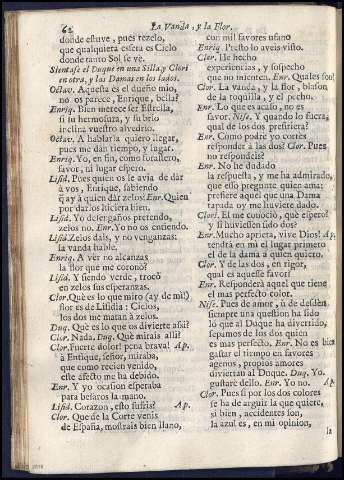 62
La Vanda, y la Flor.
donde estuve, pues rezelo,
que qualquiera esfera es Cielo
donde tanto Sol se vè.
Sientase el Duque en una Silla, y Clori
en otra, y las Damas en los lados.
Octav. Aquesta es el dueño mio,
no os parece, Enrique, bella?
Enriq. Bien merece ser Estrella,
si su hermosura, y su brio
inclina vuestro alvedrio.
Octav. A hablarla quiero llegar,
pues me dàn tiempo, y lugar.
Enriq. Yo, en fin, como forastero,
favor, ni lugar espero.
Lisid. Pues quien os le avia de dàr
à vos, Enrique, sabiendo
q̃ ay à quien dàr zelos? Enr. Quien
por darlos hiciera bien.
Lisid. Yo desengaños pretendo,
zelos no. Enr. Yo no os entiendo.
Lisid. Zelos dais, y no venganzas:
la vanda hable.
Enriq. A ver no alcanzas
la flor que me coronò?
Lisid. Y siendo verde, trocò
en zelos sus esperanzas.
Clor. Què es lo que miro (ay de mi!)
flor es de Lisida: Cielos,
los dos me matan à zelos.
Duq. Què es lo que os divierte assi?
Clor. Nada. Duq. Què mirais alli?
Clor. Fuerte dolor! pena brava! Ap.
à Enrique, señor, miraba,
que como recien venido,
este afecto me ha debido.
Enr. Y yo ocasion esperaba
para besaros la mano.
Lisid. Corazon, esto sufris? Ap.
Clor. Que de la Corte venis
de España, mostrais bien llano,
con mil favores ufano
Enriq. Presto lo aveis visto.
Clor. He hecho
experiencias, y sospecho
que no mienten. Enr. Quales son?
Clor. La vanda, y la flor, blason
de la toquilla, y el pecho.
Enr. Lo que es acaso, no es
favor. Nise. Y quando lo fuera,
qual de los dos prefiriera?
Enr. Còmo podrè yo cortès
responder à las dos? Clor. Pues
no respondeis?
Enr. No he dudado
la respuesta, y me ha admirado,
que esso pregunte quien ama:
prefiere aquel que una Dama
tapada oy me huviere dado.
Clori. El me conociò, què espero?
y si huviessen sido dos?
Enr. Mucho aprieta, vive Dios! Ap.
tendrà en mi el lugar primero
el de la dama à quien quiero.
Clor. Y de las dos, en rigor,
qual es aquesse favor?
Enr. Responderà aquel que tiene
el mas perfecto color.
Nise. Pues de amor, ù de desdèn
siempre una question ha sido
lo que al Duque ha divertido,
sepamos de los dos quien
es mas perfecto. Enr. No es bien
gastar el tiempo en favores
agenos, proprios amores
diviertan al Duque. Duq. Yo
gustarè dello. Enr. Yo no. Ap.
Clor. Pues si por los dos colores
se ha de arguir la que quiere,
si bien, accidentes son,
la azul es, en mi opinion,
la